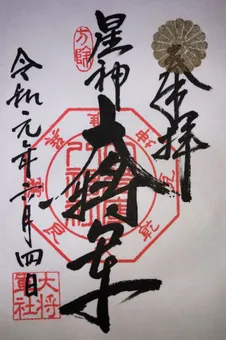 奉拝
方除
星神
大将軍
巽
坤
乾
艮
令和元年六月四日
大将
軍社